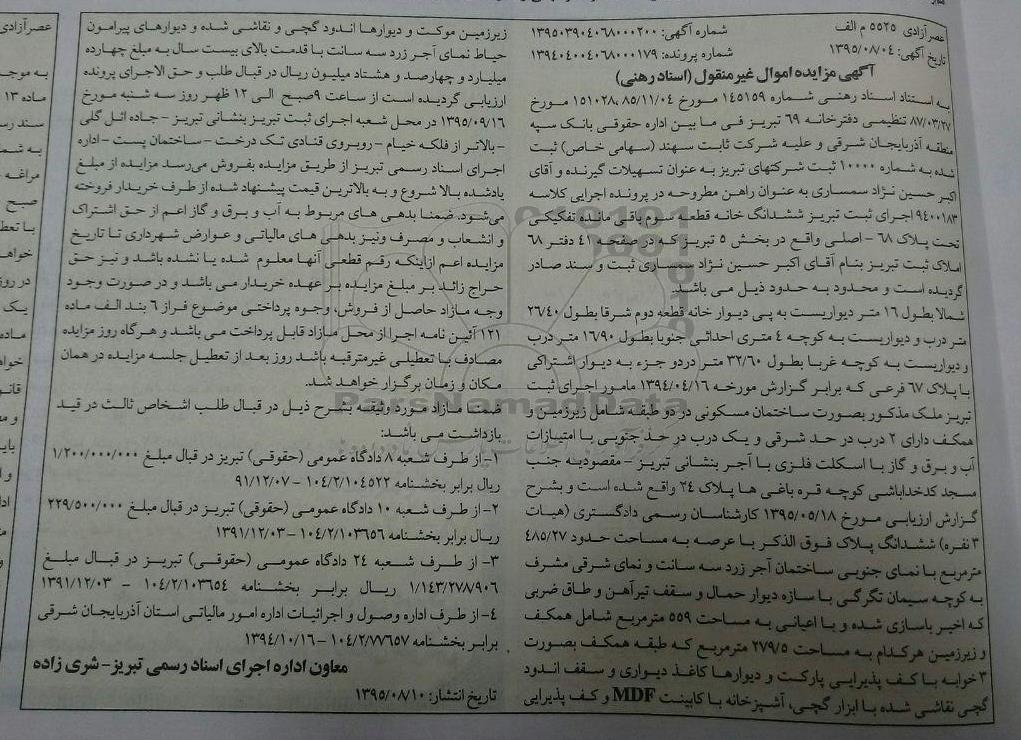 عصر آزادی ۵۵۲۵ م الف
شماره آگهی: ۱۳۹۵۰۳۹۰۴۰۶۸۰۰۰۲۰۰
تاریخ آگهی: ۱۳۹۵/۰۸/۰۴
شماره پرونده: ۱۳۹۴۰۴۰۰۴۰۶۸۰۰۰۱۷۹
آگهی مزایده اموال غیر منقول (اسناد رهنی)
به استناد اسناد رهنی شماره ۱۴۵۱۵۹ مورخ ۸۵/۱۱/۰۴، ۱۵۱۰۲۸ مورخ
۸۷/۰۳/۲۷ تنظیمی دفترخانه ۶۹ تبریز فی ما بین اداره حقوقی بانک سپه
منطقه آذربایجان شرقی و علیه شرکت ثابت سهند (سهامی خاص) ثبت
شده به شماره ۱۰۰۰۰ ثبت شرکتهای تبریز به عنوان تسهیلات گیرنده و آقای
اکبر حسین نژاد سمساری به عنوان راهن مطروحه در پرونده اجرایی کلاسه
۹۴۰۰۱۸۳ اجرای ثبت تبریز ششدانگ خانه قطعه سوم باقی مانده تفکیکی
تحت پلاک ۶۸ - اصلی واقع در بخش ۵ تبریز که در صفحه ۴۱ دفتر ۶۸
املاک ثبت تبریز بنام آقای اکبر حسین نژاد سمساری ثبت و سند صادر
گردیده است و محدود به حدود ذیل می باشد.
شمالا بطول ۱۶ متر دیواریست به پی دیوار خانه قطعه دوم شرقا بطول ۲۶/۴۰
متر درب و دیواریست به کوچه ۴ متری احداثی جنوبا بطول ۱۶/۹۰ متر درب
و دیواریست به کوچه غربا بطول ۳۲/۶۰ متر دردو جزء به دیوار اشتراکی
با پلاک ۶۷ فرعی که برابر گزارش مورخه ۱۳۹۴/۰۴/۱۶ مامور اجرای ثبت
تبریز ملک مذکور بصورت ساختمان مسکونی در دو طبقه شامل زیرزمین و
همکف دارای ۲ درب در حد شرقی و یک درب در حد جنوبی با امتیازات
آب و برق و گاز با اسکلت فلزی با آجر بنشانی تبریز - مقصودیه جنب
مسجد کدخداباشی کوچه قره باغی ها پلاک ۲۴ واقع شده است و بشرح
گزارش ارزیابی مورخ ۱۳۹۵/۰۵/۱۸ کارشناسان رسمی دادگستری (هیات
۳ نفره) ششدانگ پلاک فوق الذکر با عرصه به مساحت حدود ۴۸۵/۲۷
مترمربع با نمای جنوبی ساختمان آجر زرد سه سانت و نمای شرقی مشرف
به کوچه سیمان تگرگی با سازه دیوار حمال و سقف تیرآهن و طاق ضربی
که اخیر باسازی شده و با اعیانی به مساحت ۵۵۹ مترمربع شامل همکف
و زیرزمین هرکدام به مساحت ۲۷۹/۵ مترمربع که طبقه همکف بصورت
۳ خوابه با کف پذیرایی پارکت و دیوارها کاغذ دیواری و سقف اندود
گچی نقاشی شده با ابزار گچی، آشپزخانه با کابینت MDF و کف پذیرایی
زیرزمین موکت و دیوارها اندود گچی و نقاشی شده و دیوارهای پیرامون
حیاط نمای آجر زرد سه سانت با قدمت بالای بیست سال به مبلغ چهارده
میلیارد و چهارصد و هشتاد میلیون ریال در قبال طلب و حق الاجرای پرونده
ارزیابی گردیده است از ساعت ۹صبح الی ۱۲ ظهر روز سه شنبه مورخ
۱۳۹۵/۰۹/۱۶ در محل شعبه اجرای ثبت تبریز بنشانی تبریز - جاده ائل گلی
- بالاتر از فلکه خیام - روبروی قنادی تک درخت - ساختمان پست - اداره
اجرای اسناد رسمی تبریز از طریق مزایده بفروش می‌رسد مزایده از مبلغ
یادشده بالا شروع و به بالاترین قیمت پیشنهاد شده از طرف خریدار فروخته
می‌شود. ضمنا بدهی های مربوط به آب و برق و گاز اعم از حق اشتراک
و انشعاب و مصرف ونیز بدهی های مالیاتی و عوارض شهرداری تا تاریخ
مزایده اعم ازاینکه رقم قطعی آنها معلوم شده یا نشده باشد و نیز حق
حراج زائد بر مبلغ مزایده بر عهده خریدار می باشد و در صورت وجود
وجه مازاد حاصل از فروش، وجوه پرداختی موضوع فراز ۶ بند الف ماده
۱۲۱ آئین نامه اجرا از محل مازاد قابل پرداخت می باشد و هرگاه روز مزایده
مصادف با تعطیلی غیرمترقبه باشد روز بعد از تعطیل جلسه مزایده در همان
مکان و زمان برگزار خواهد شد.
ضمنا مازاد مورد وثیقه بشرح ذیل در قبال طلب اشخاص ثالث در قید
بازداشت می باشد:
۱- از طرف شعبه ۸ دادگاه عمومی (حقوقی) تبریز در قبال مبلغ ۱/۲۰۰/۰۰۰/۰۰۰
ریال برابر بخشنامه ۱۰۴/۲/۱۰۴۵۲۲ - ۹۱/۱۲/۰۷
۲- از طرف شعبه ۱۰ دادگاه عمومی (حقوقی) تبریز در قبال مبلغ ۲۲۹/۵۰۰/۰۰۰
ریال برابر بخشنامه ۱۰۴/۲/۱۰۳۶۵۶ - ۱۳۹۱/۱۲/۰۳
۳- از طرف شعبه ۲۴ دادگاه عمومی (حقوقی) تبریز در قبال مبلغ
۱/۱۴۳/۲۷۸/۹۰۶ ریال برابر بخشنامه ۱۰۴/۲/۱۰۳۶۵۴ - ۱۳۹۱/۱۲/۰۳
۴- از طرف اداره وصول و اجرائیات اداره امور مالیاتی استان آذربایجان شرقی
برابر بخشنامه ۱۰۴/۲/۷۷۶۵۷ - ۱۳۹۴/۱۰/۱۶
معاون اداره اجرای اسناد رسمی تبریز - شری زاده
تاریخ انتشار: ۱۳۹۵/۰۸/۱۰
ParsNamadData
عصر آزادی
به موجب
ماده ۱۳